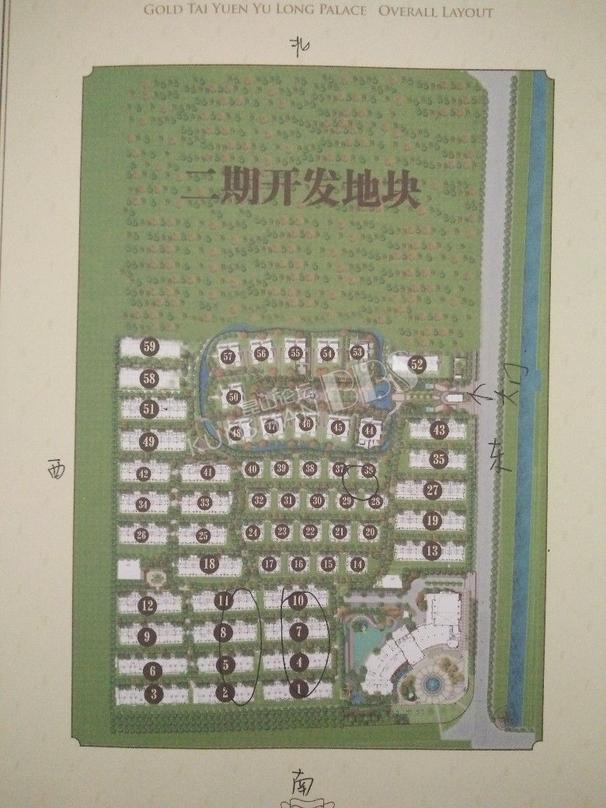 GOLD TAI YUEN YU LONG PALACE OVERALL LAYOUT
北
二期开发地块
59
57 56 55 54 53
52
58
50
大门
51
48 47 46 45 44
43
49
东
35
西
42 41 40 39 38 37 36
27
34 33 32 31 30 29 28
19
26 25 24 23 22 21 20
13
18 17 16 15 14
12 11 10
9 8 7
6 5 4
3 2 1
南
KUNSHAN BBS
昆山论坛